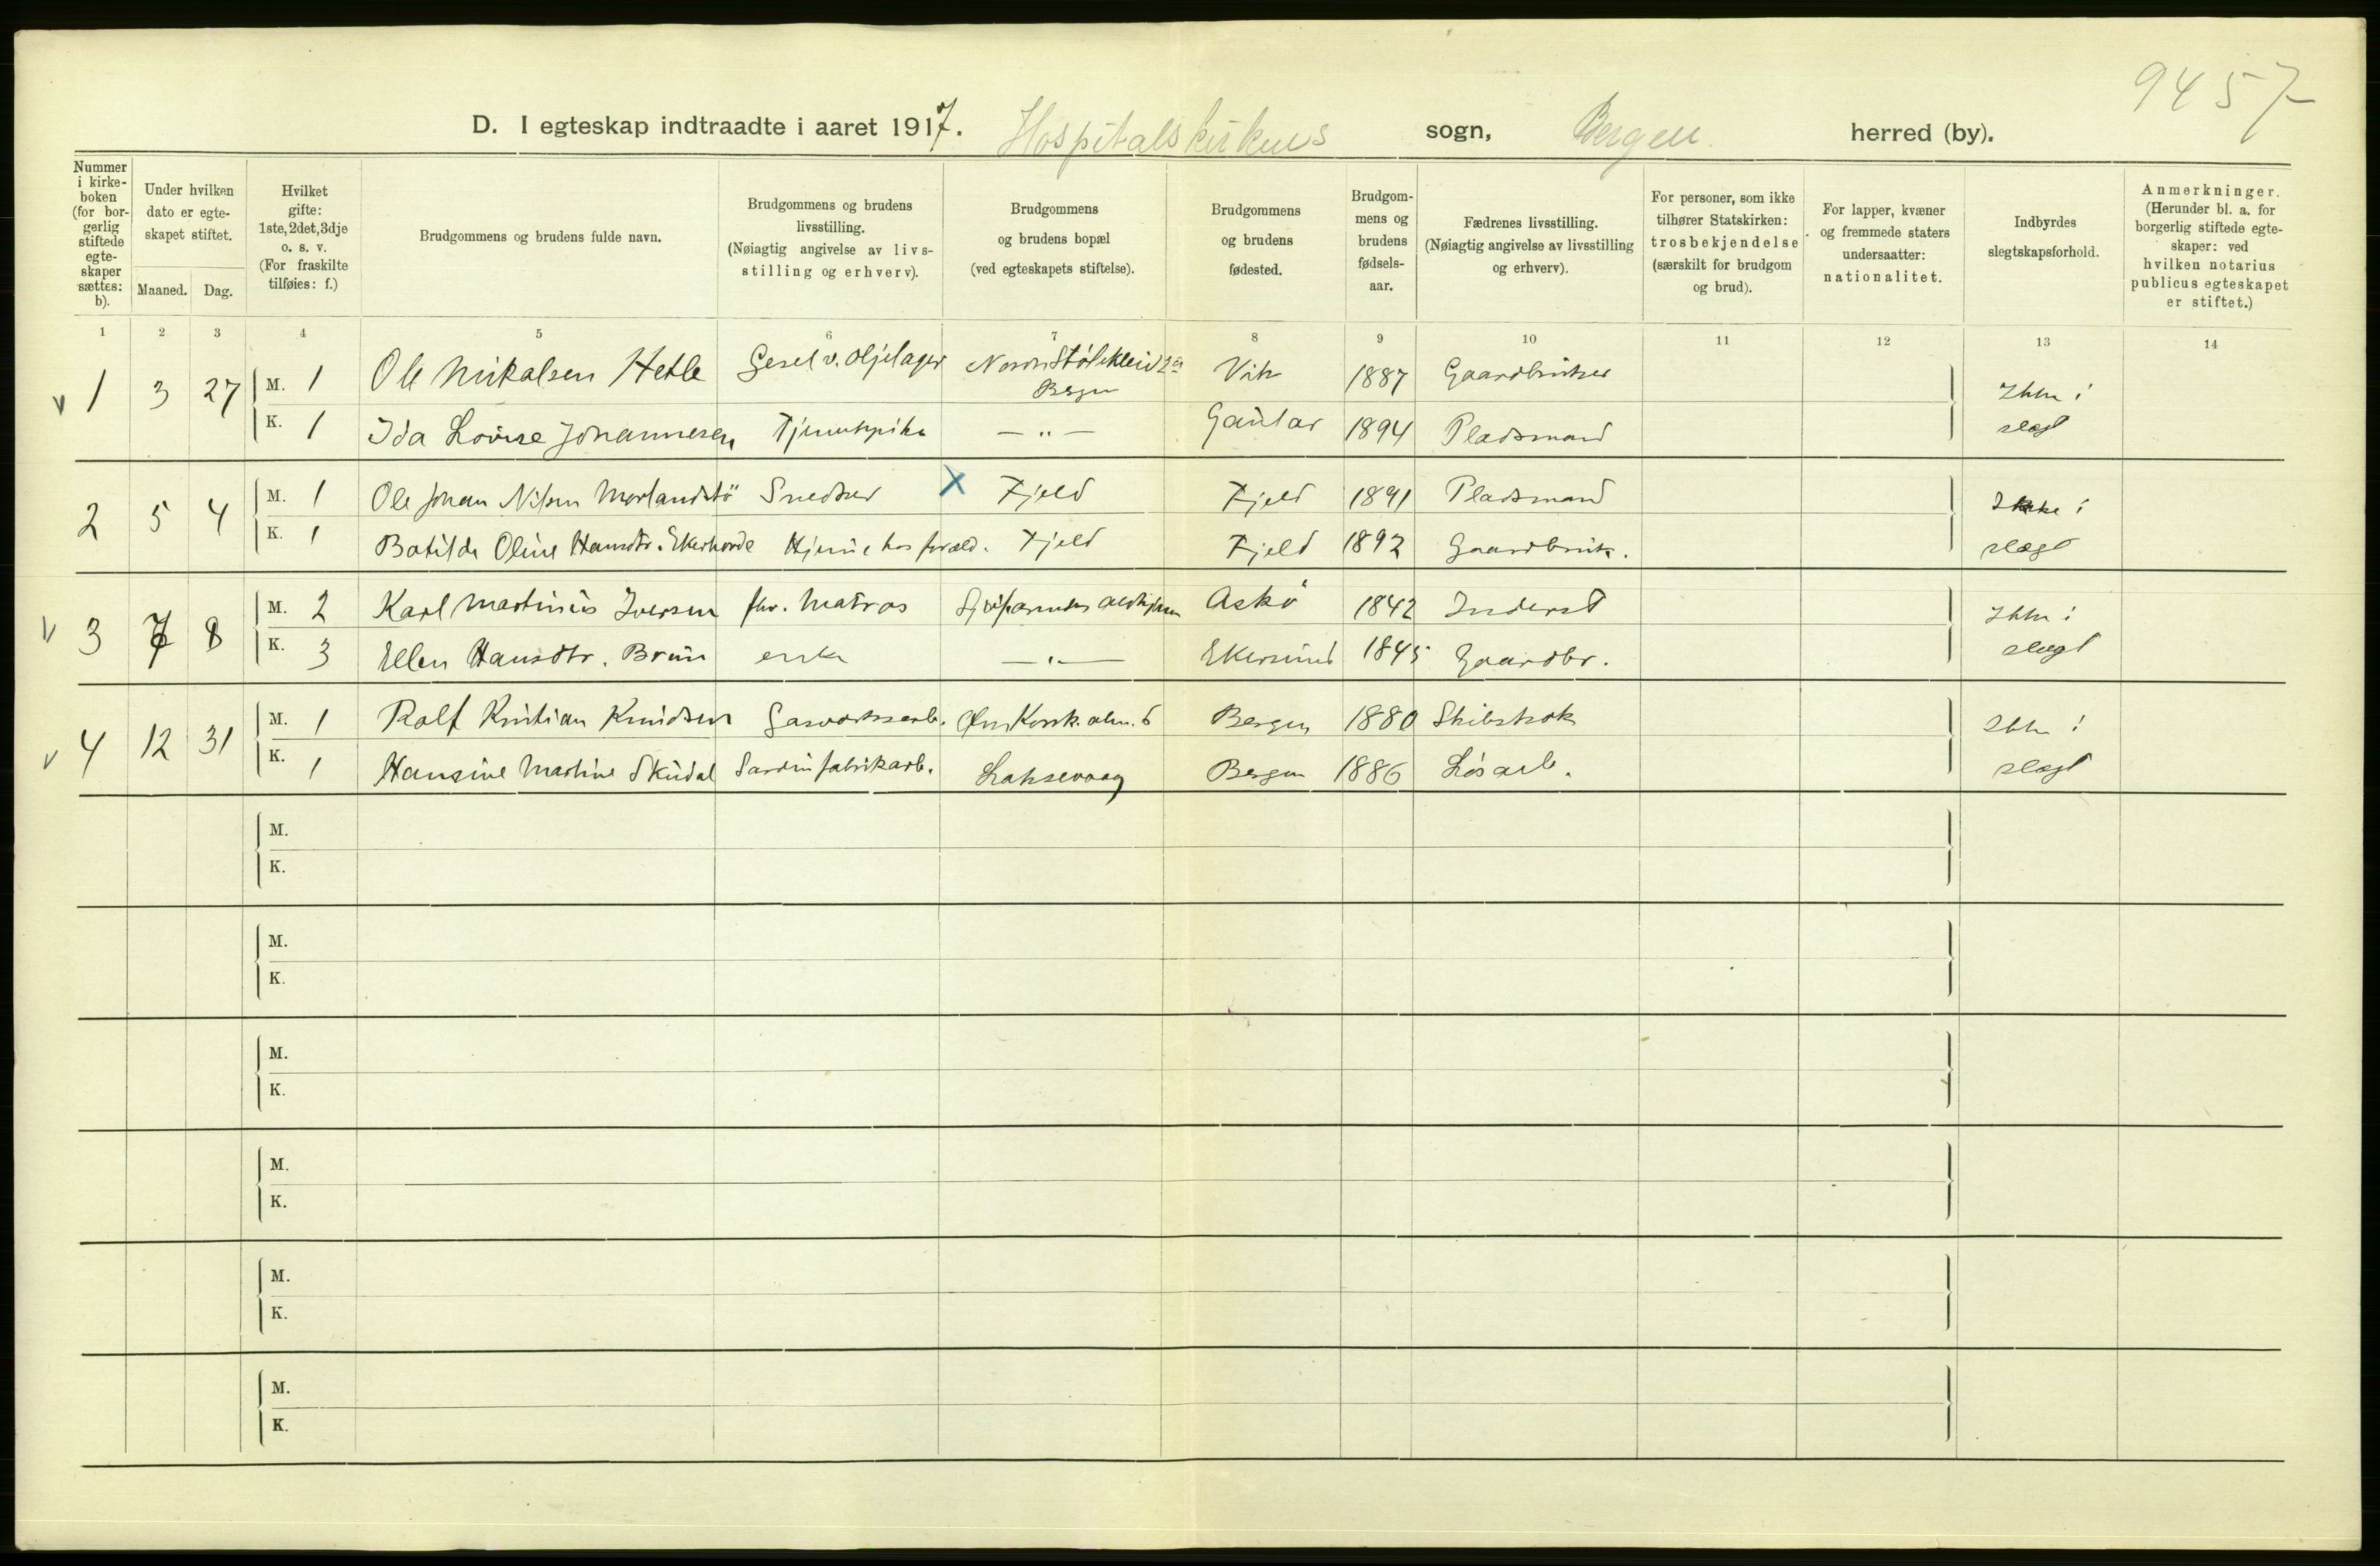 9457
D. I egteskap indtraadte i aaret 1917. Hospitalskirkens sogn, Bergen herred (by).
Nummer i kirkeboken (for borgerlig stiftede egteskaper sættes: b).
Under hvilken dato er egteskapet stiftet.
Maaned. Dag.
Hvilket gifte: 1ste, 2det, 3dje o. s. v. (For fraskilte tilføies: f.)
Brudgommens og brudens fulde navn.
Brudgommens og brudens livsstilling. (Nøiagtig angivelse av livsstilling og erhverv).
Brudgommens og brudens bopæl (ved egteskapets stiftelse).
Brudgommens og brudens fødested.
Brudgommens og brudens fødselsaar.
Fædrenes livsstilling. (Nøiagtig angivelse av livsstilling og erhverv).
For personer, som ikke tilhører Statskirken: trosbekjendelse (særskilt for brudgom og brud).
For lapper, kvæner og fremmede staters undersaatter: nationalitet.
Indbyrdes slegtskapsforhold.
Anmerkninger. (Herunder bl. a. for borgerlig stiftede egteskaper: ved hvilken notarius publicus egteskapet er stiftet.)
1 2 3 4 5 6 7 8 9 10 11 12 13 14
v 1 3 27 M. 1 Ole Mikalsen Hetle v. oljelager Bergen Vik 1887 Gaardbruker Ikke i
K. 1 Ida Lovise Johannesen Tjenestepike — " — Gaular 1894 Pladsmand slegt
2 5 4 M. 1 Ole Johan Nilsen Morlandstö Snedker X Fjeld Fjeld 1891 Pladsmand Ikke i
K. 1 Botilde Oline Hansdtr. Ekerhovde Hjemme hos foræld. Fjeld Fjeld 1892 Gaardbruk. slegt
v 3 7 8 M. 2 Karl Martinus Iversen fhv. Matros Sjöfarendes aldhjem Askö 1842 Inderst Ikke i
K. 3 Ellen Hansdtr. Brun enke — " — Ekersund 1845 Gaardbr. slegt
v 4 12 31 M. 1 Rolf Kristian Knudsen Gasverksarb. Korsk. alm. 6 Bergen 1880 Skibskok Ikke i
K. 1 Hansine Martine Skudal Sardinfabrikarb. Laksevaag Bergen 1886 Løsarb. slegt
M.
K.
M.
K.
M.
K.
M.
K.
M.
K.
M.
K.